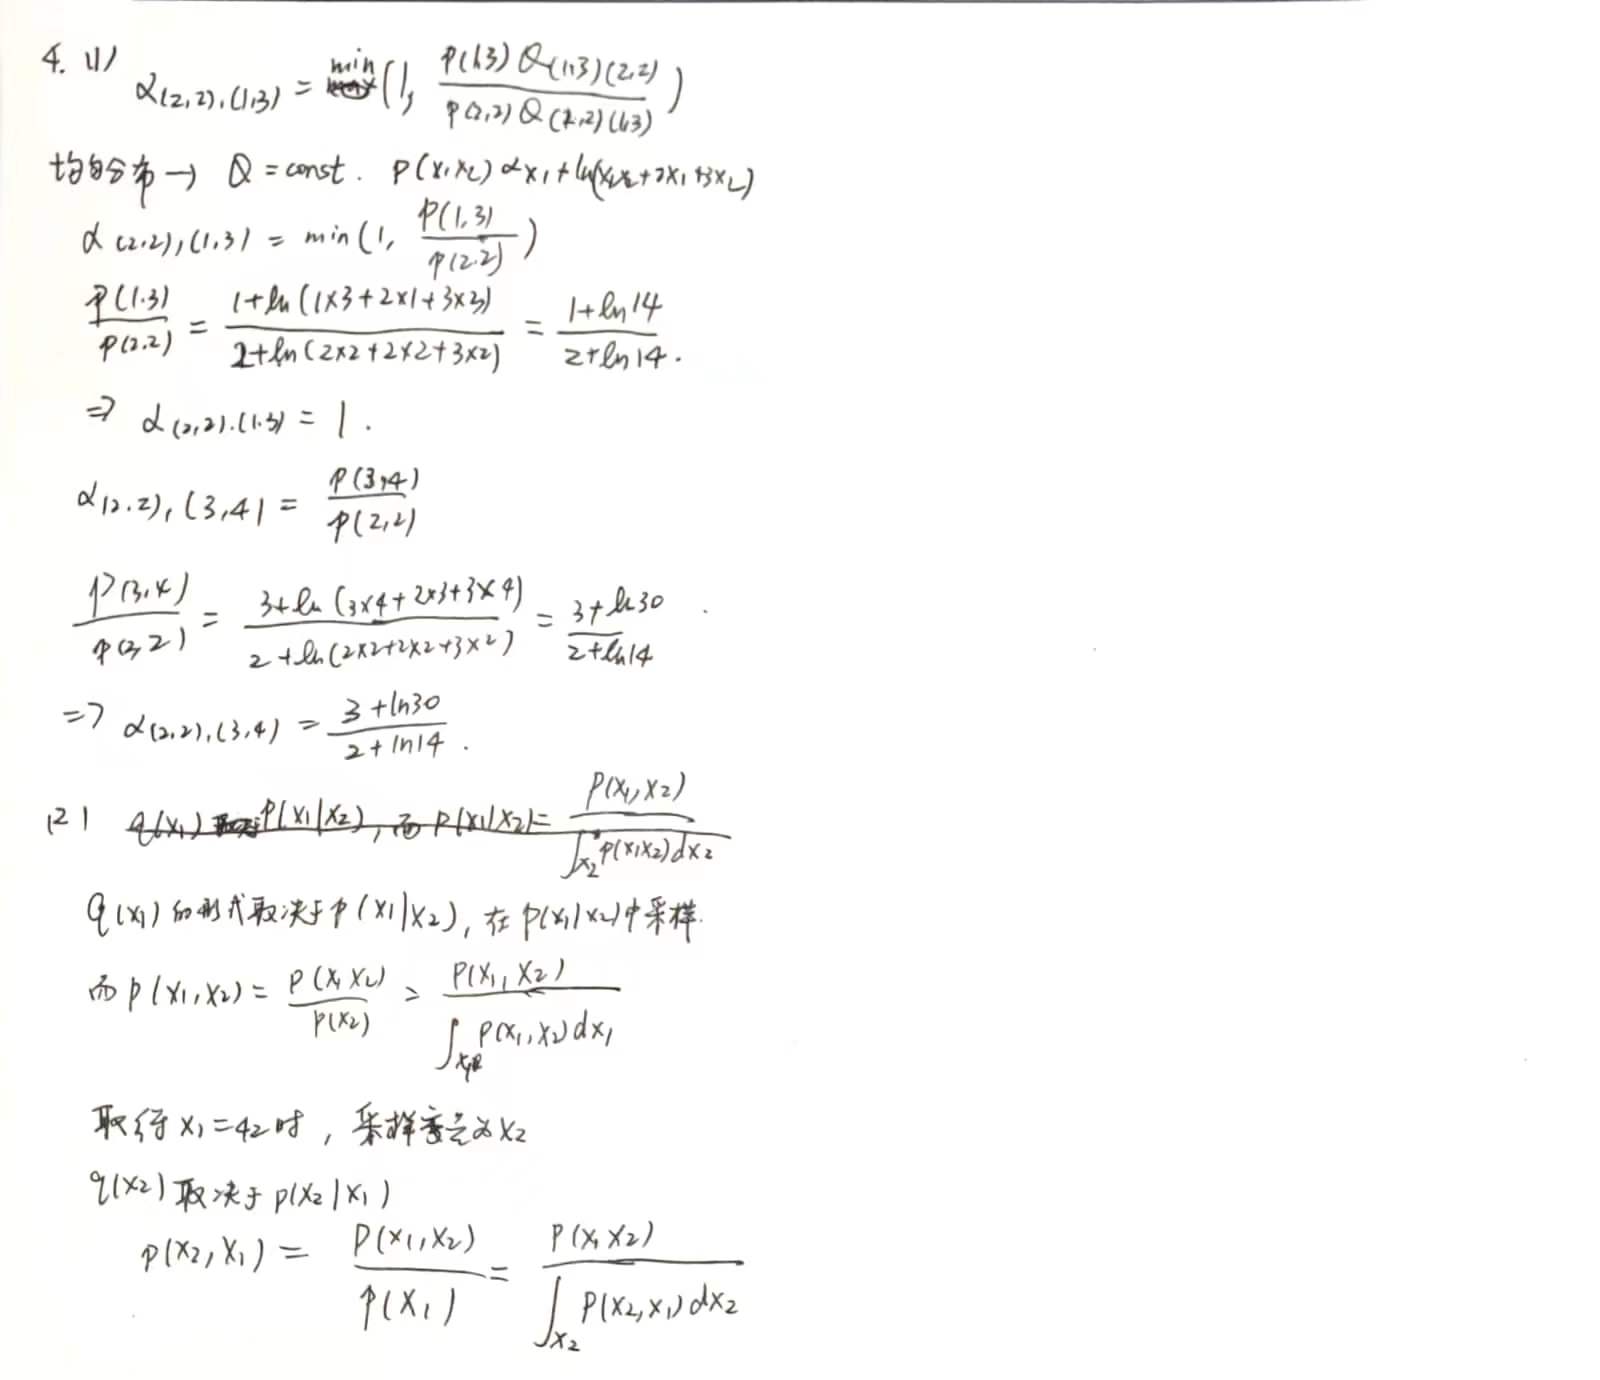 4. (1)
α(2,2),(1,3) = min(1, P(1,3) Q(1,3)(2,2) / P(2,2) Q(2,2)(1,3))
均匀分布 → Q = const. P(x1x2) ∝ x1 + ln(x1x2+2x1+3x2)
α(2,2),(1,3) = min(1, P(1,3) / P(2,2))
P(1,3) / P(2,2) = 1+ln(1×3+2×1+3×3) / 2+ln(2×2+2×2+3×2) = 1+ln14 / 2+ln14.
⇒ α(2,2),(1,3) = 1.
α(2,2),(3,4) = P(3,4) / P(2,2)
P(3,4) / P(2,2) = 3+ln(3×4+2×3+3×4) / 2+ln(2×2+2×2+3×2) = 3+ln30 / 2+ln14.
⇒ α(2,2),(3,4) = 3+ln30 / 2+ln14.
(2) q(x1) P(x1|x2), 而 P(x1|x2) = P(x1,x2) / ∫x2 P(x1x2)dx2
q(x1)的形式取决于P(x1|x2), 在P(x1|x2)中采样.
而P(x1,x2) = P(x1x2) / P(x2) = P(x1,x2) / ∫ P(x1,x2)dx1
取得x1=42时, 采样变量为x2
q(x2)取决于P(x2|x1)
P(x2,x1) = P(x1,x2) / P(x1) = P(x1x2) / ∫x2 P(x2,x1)dx2